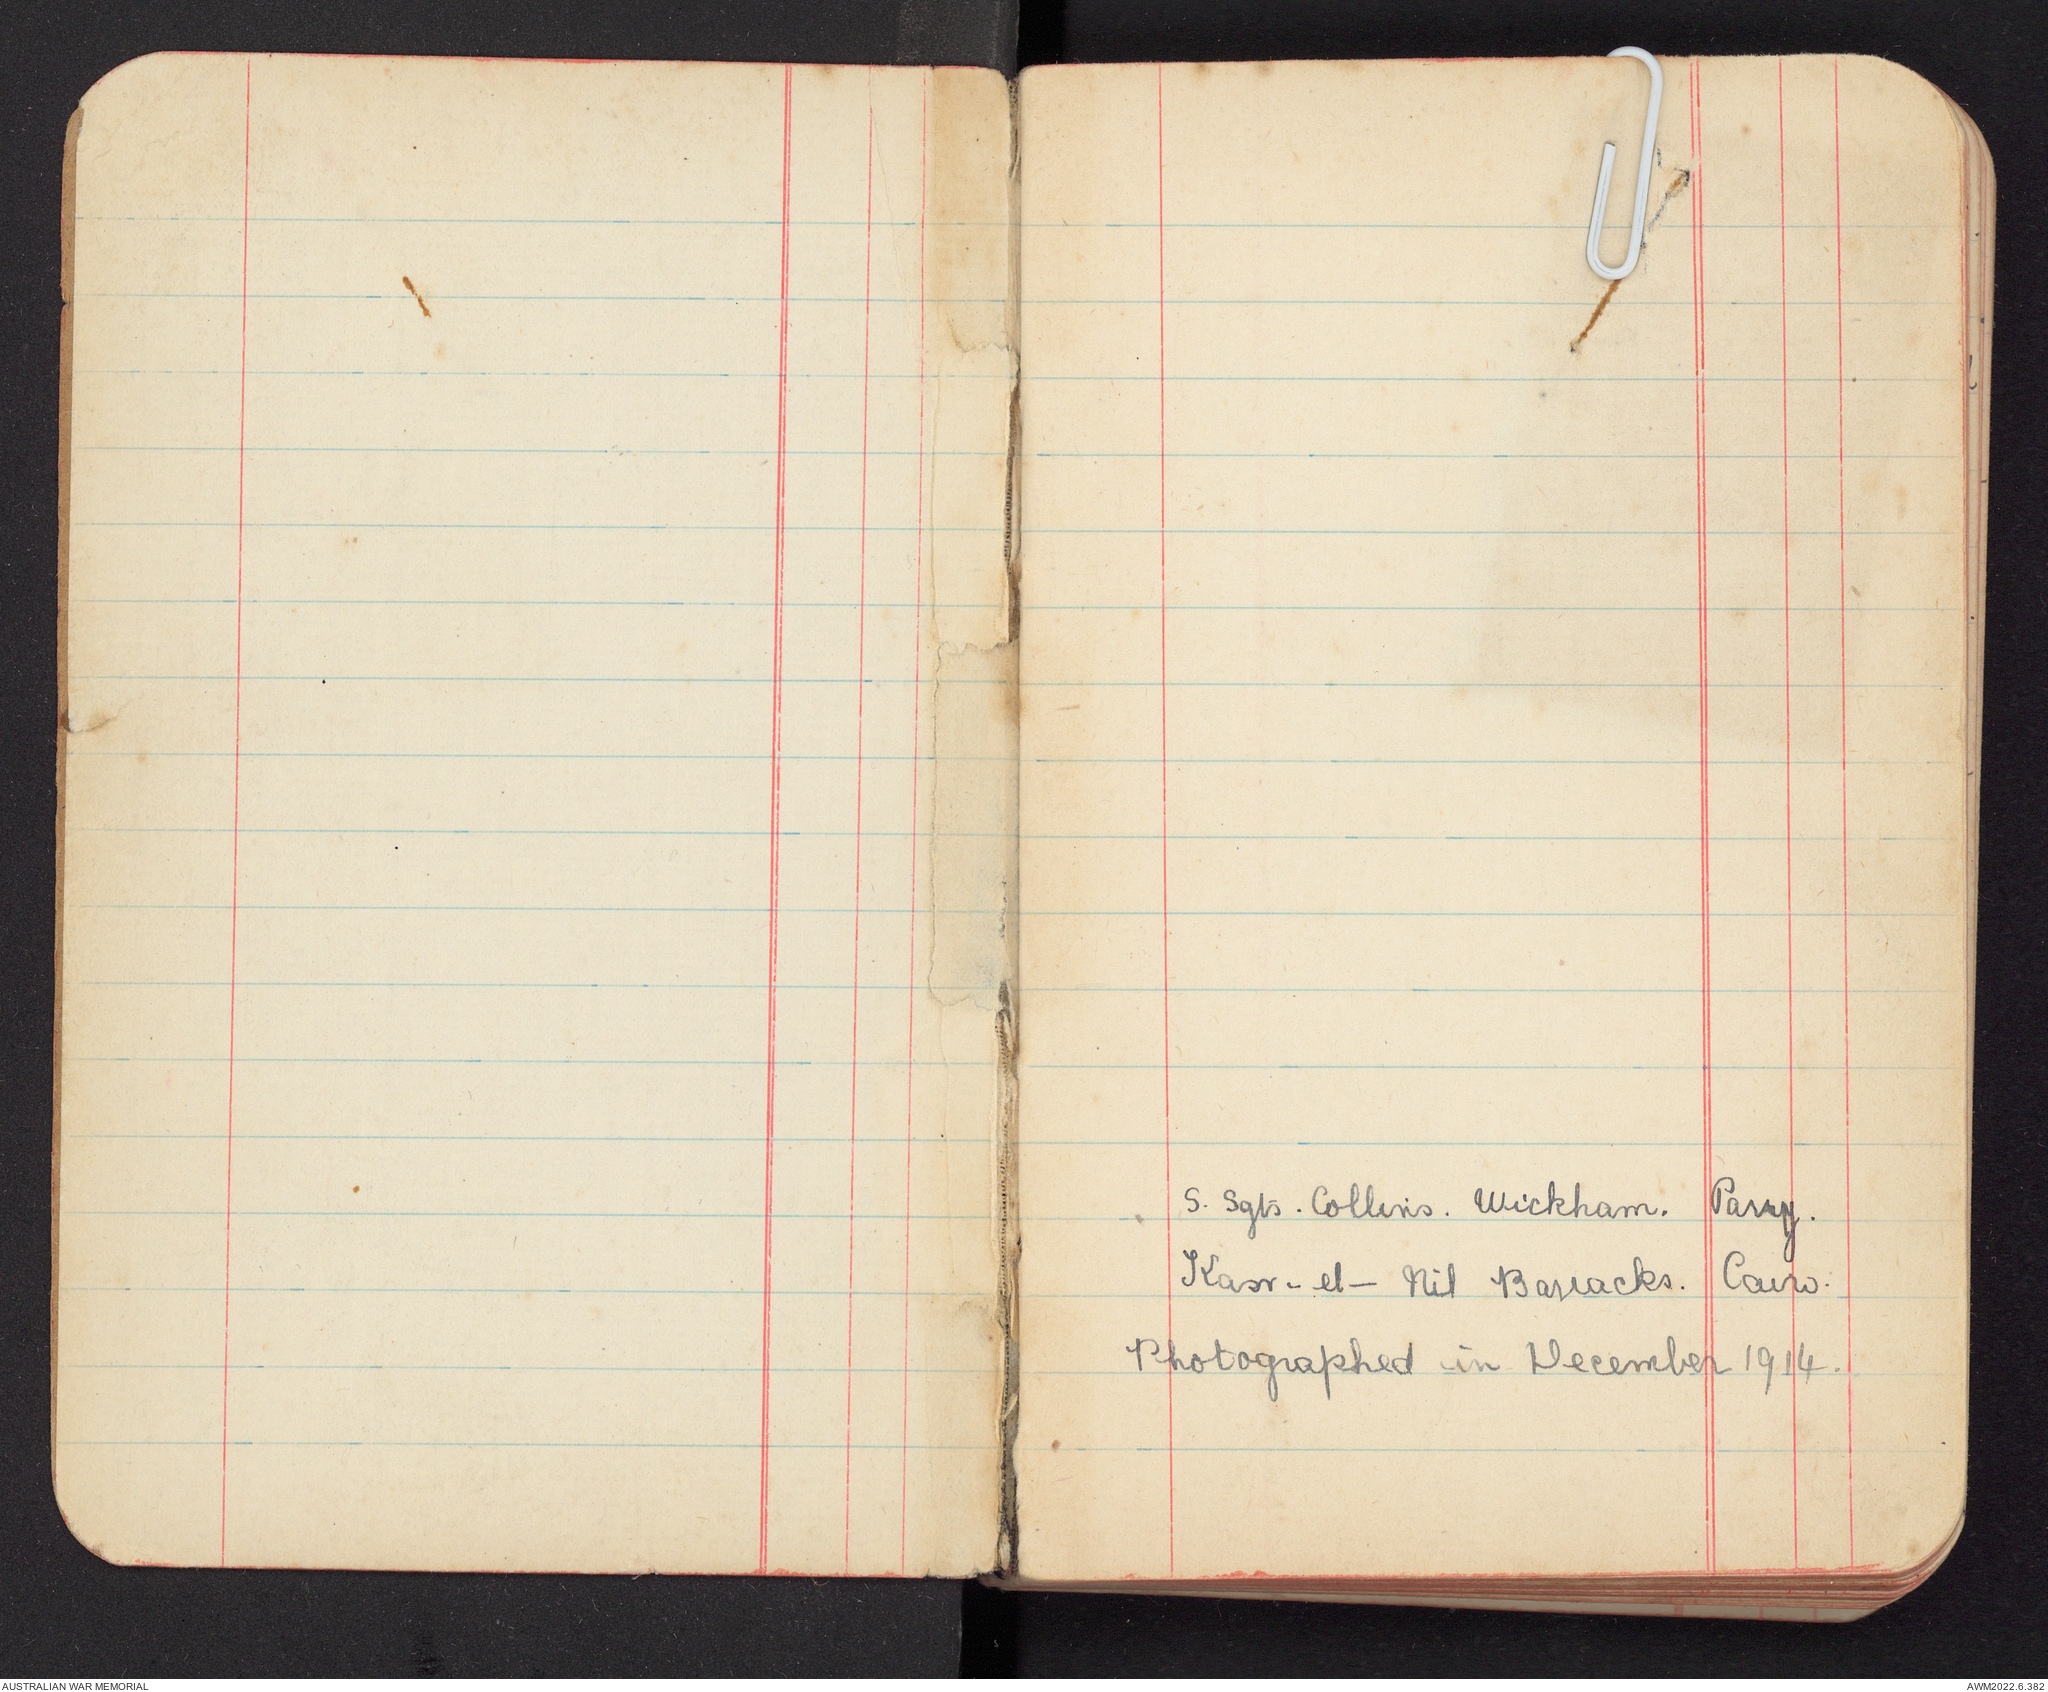 S. Sgts. Collins. Wickham. Parry.
Kasr-el-Nil Barracks. Cairo.
Photographed in December 1914.
AUSTRALIAN WAR MEMORIAL
AWM2022.6.382